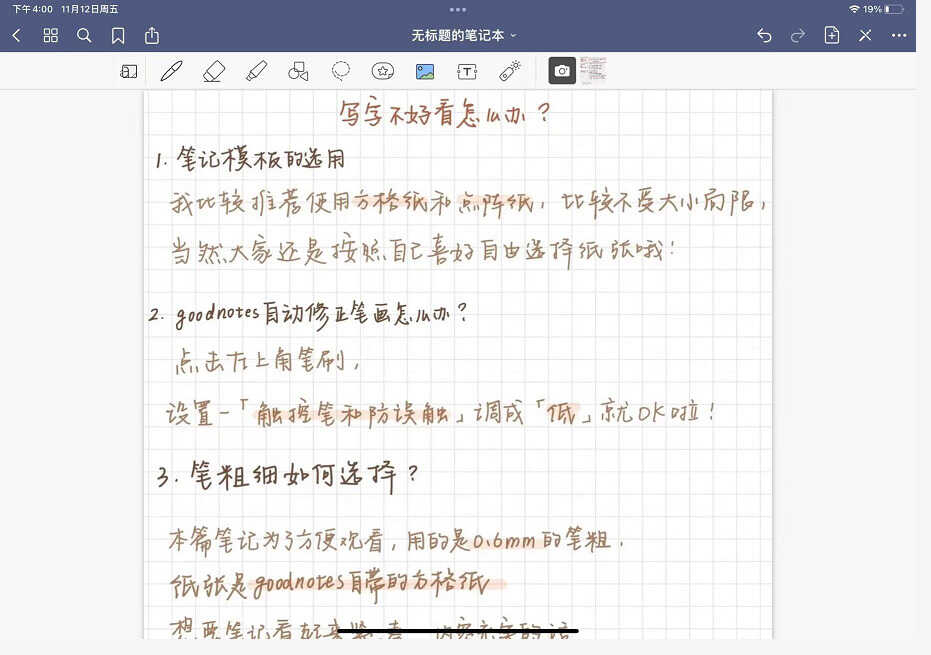 下午4:00 11月12日周五
19%
无标题的笔记本
写字不好看怎么办？
1. 笔记模板的选用
我比较推荐使用方格纸和点阵纸，比较不受大小局限，
当然大家还是按照自己喜好自由选择纸张哦！
2. goodnotes自动修正笔画怎么办？
点击左上角笔刷，
设置一「触控笔和防误触」调成「低」就OK啦！
3. 笔粗细如何选择？
本篇笔记为了方便观看，用的是0.6mm的笔粗.
纸张是goodnotes自带的方格纸
想要笔记看起来